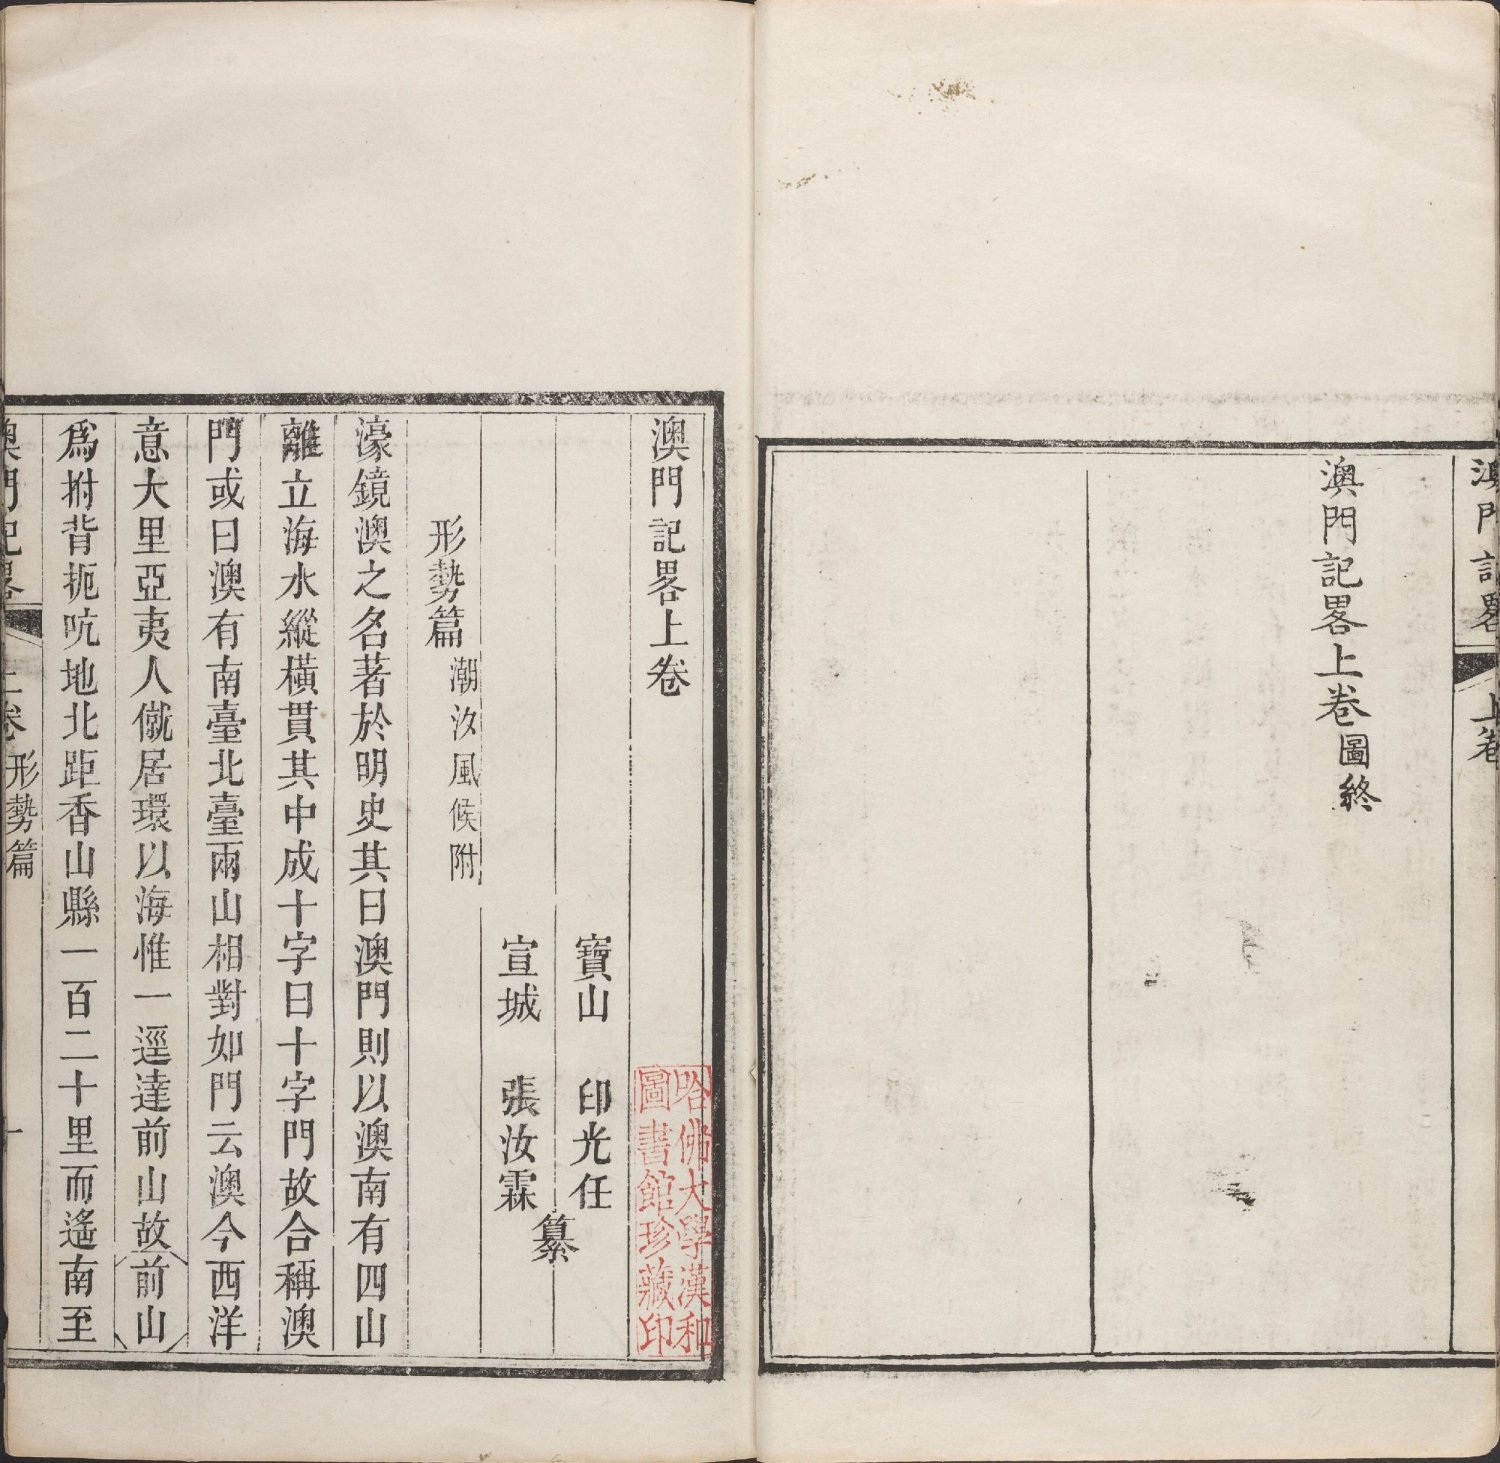 澳門記畧 上卷
澳門記畧上卷圖終
澳門記畧上卷
寶山 印光任
宣城 張汝霖
纂
形勢篇 潮汐風候附
濠鏡澳之名著於明史其曰澳門則以澳南有四山
離立海水縱橫貫其中成十字曰十字門故合稱澳
門或曰澳有南臺北臺兩山相對如門云澳今西洋
意大里亞夷人僦居環以海惟一逕達前山故前山
爲拊背扼吭地北距香山縣一百二十里而遙南至
澳門記畧 上卷 形勢篇 一
哈佛大學漢和
圖書館珍藏印